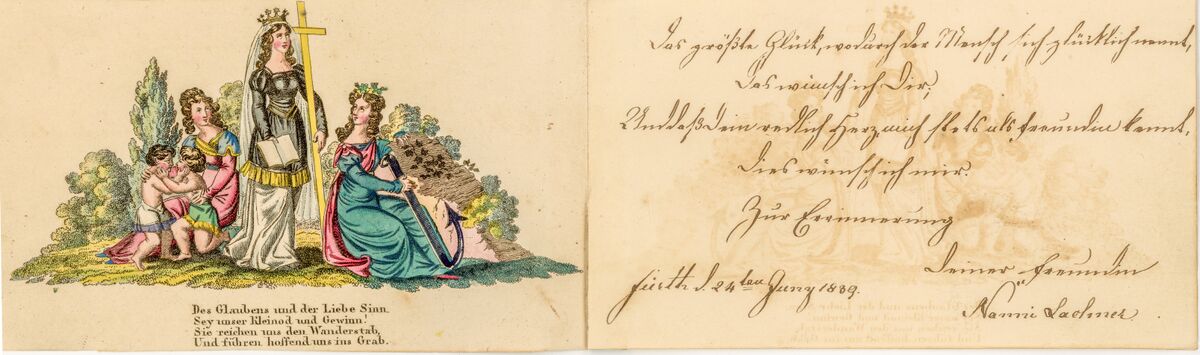 Des Glaubens und der Liebe Sinn
Sey unser Kleinod und Gewinn!
Sie reichen uns den Wanderstab,
Und führen hoffend uns ins Grab.
Das größte Glück, wodurch der Mensch sich glücklich nennt,
Das wünsch ich Dir;
Und daß Dein redlich Herz mich stets als Freundin kennt,
Dies wünsch ich mir.
Zur Errinnerung
Deiner Freundin
Fürth d. 24ten Juny 1839.
Nanni Lachner